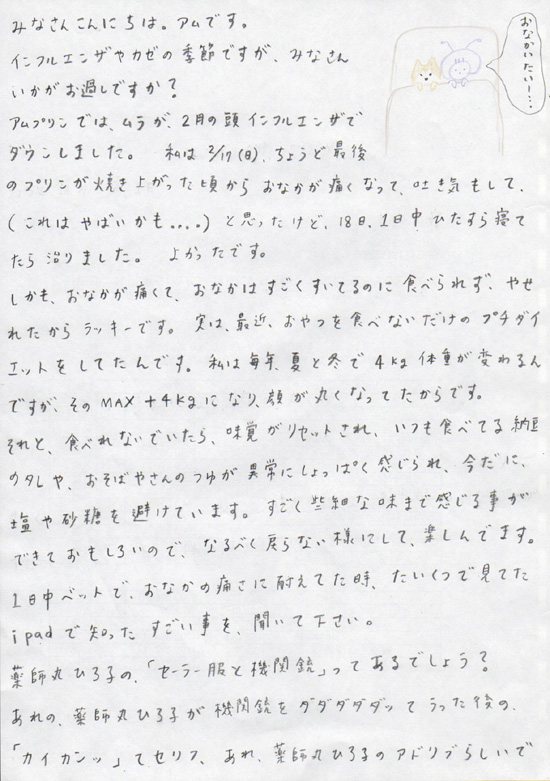 みなさんこんにちは。アムです。
インフルエンザやカゼの季節ですが、みなさん
いかがお過しですか？
おなかいたいー…
アムプリンでは、ムラが、2月の頭インフルエンザで
ダウンしました。 私は2/17(日)、ちょうど最後
のプリンが焼き上がった頃からおなかが痛くなって、吐き気もして、
(これはやばいかも....)と思ったけど、18日、1日中ひたすら寝て
たら治りました。 よかったです。
しかも、おなかが痛くて、おなかはすごくすいてるのに食べられず、やせ
れたからラッキーです。 実は、最近、おやつを食べないだけのプチダイ
エットをしてたんです。私は毎年、夏と冬で4kg体重が変わるん
ですが、そのMAX+4kgになり、顔が丸くなってたからです。
それと、食べれないでいたら、味覚がリセットされ、いつも食べてる納豆
のタレや、おそばやさんのつゆが異常にしょっぱく感じられ、今だに、
塩や砂糖を避けています。すごく些細な味まで感じる事が
できておもしろいので、なるべく戻らない様にして、楽しんでます。
1日中ベットで、おなかの痛さに耐えてた時、たいくつで見てた
ipadで知ったすごい事を、聞いて下さい。
薬師丸ひろ子の、「セーラー服と機関銃」ってあるでしょう？
あれの、薬師丸ひろ子が機関銃をダダダダダッてうった後の、
「カイカンッ」てセリフ、あれ、薬師丸ひろ子のアドリブらしいで